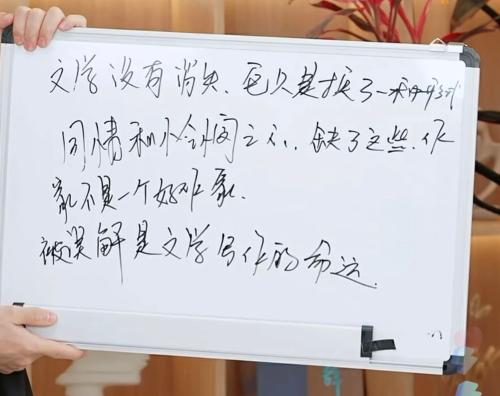 文学没有消失,它只是换了一种形式
同情和恻隐之心,缺了这些,作
家不是一个好作家.
被误解是文学写作的命运.